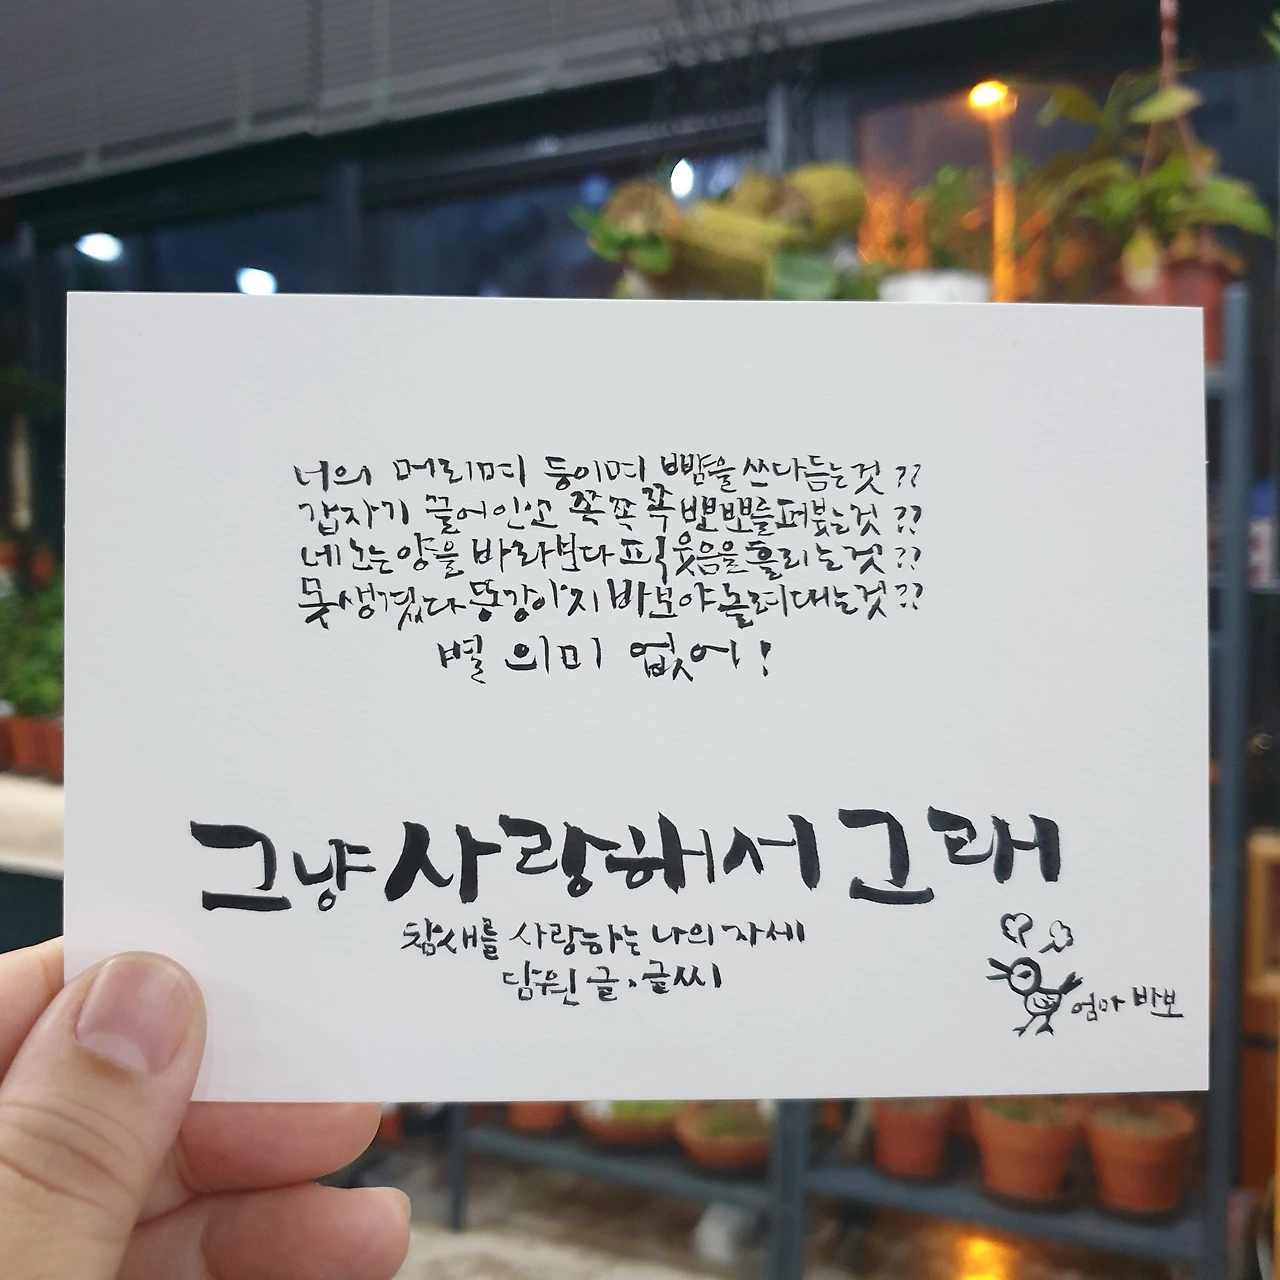 너의 머리며 등이며 뺨을 쓰다듬는것??
갑자기 끌어안고 쪽쪽쪽 뽀뽀를퍼붓는것??
네 노는양을 바라보다 피식웃음을흘리는것??
못생겼다 똥강아지 바보야 놀려대는것??
별 의미 없어!
그냥 사랑해서 그래
참새를 사랑하는 나의 자세
담원 글, 글씨
엄마 바보